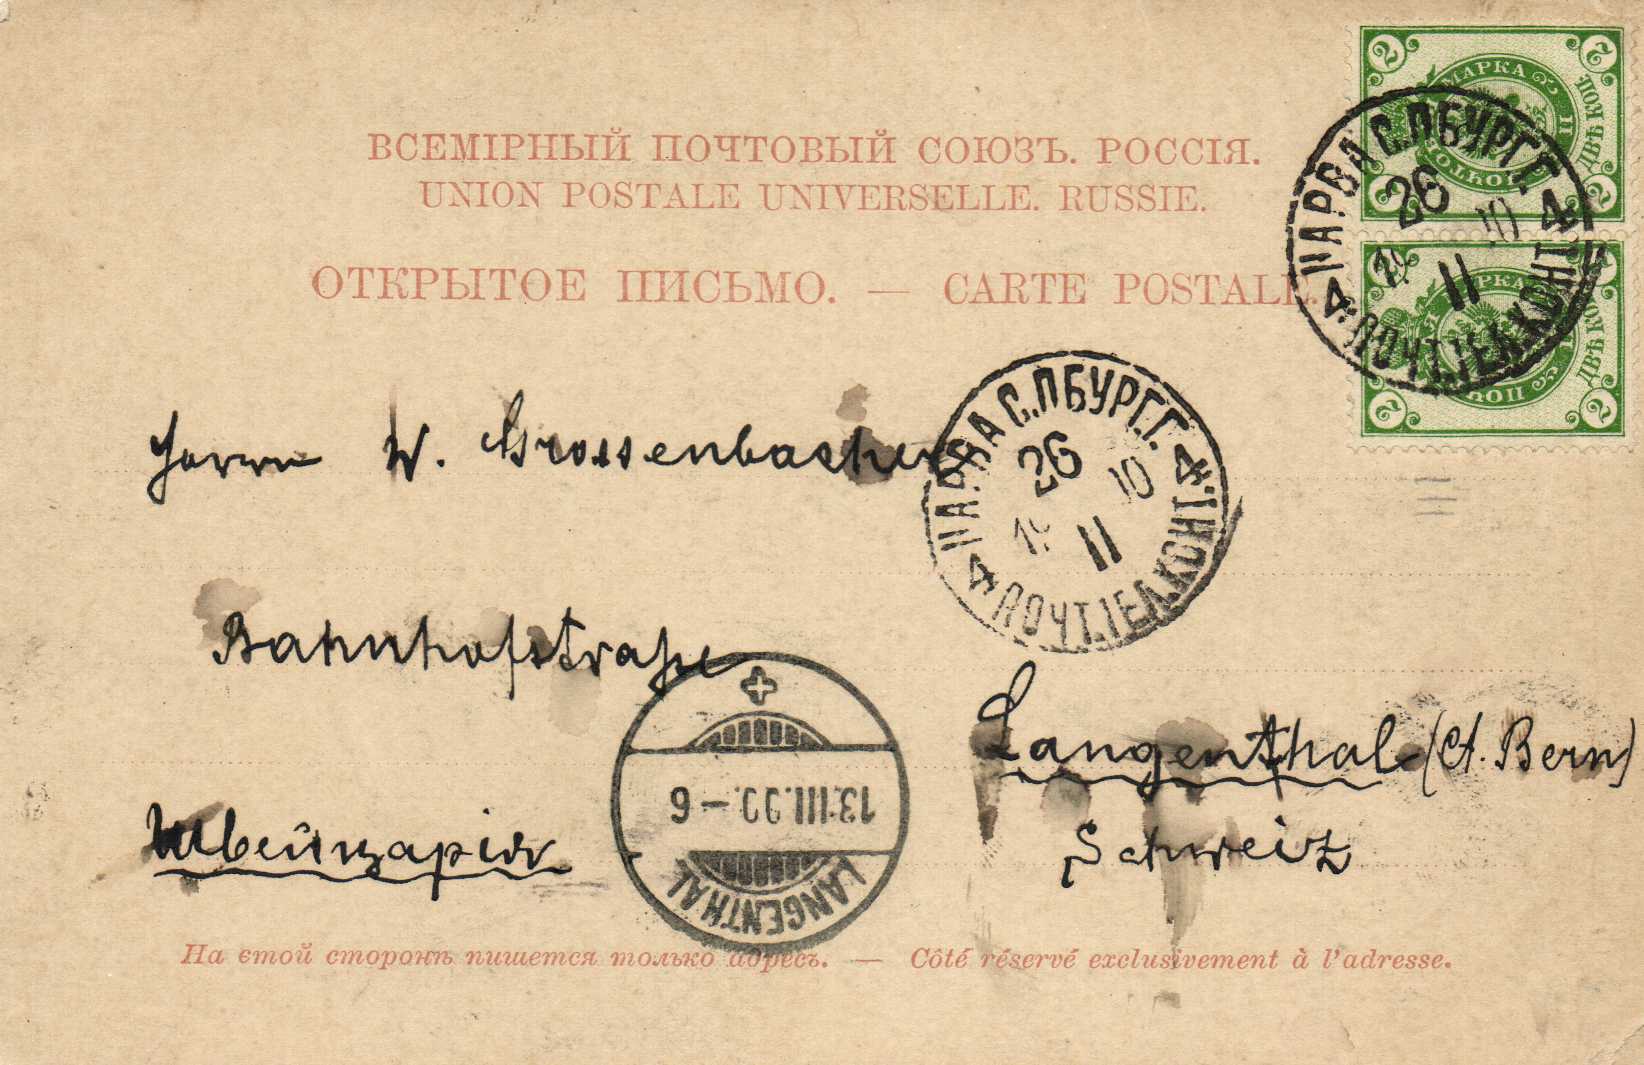 ВСЕМІРНЫЙ ПОЧТОВЫЙ СОЮЗЪ. РОССІЯ.
UNION POSTALE UNIVERSELLE. RUSSIE.
ОТКРЫТОЕ ПИСЬМО. — CARTE POSTALE.
2 МАРКА 2
ДВѢ КОП.
2 2
НАРВА С.ПБУРГ.Г. 4
26 10
11
4 ПОЧТ.ТЕЛ.КОНТ.
2 МАРКА 2
ДВѢ КОП.
2 2
Herrn W. Grossenbacher
НАРВА С.ПБУРГ.Г. 4
26 10
11
4 ПОЧТ.ТЕЛ.КОНТ.
Bahnhofstraße
Langenthal (Ct. Bern)
Швейцарія
Schweiz
13.III.99.-6
LANGENTHAL
На етой сторонѣ пишется только адресъ. — Côté réservé exclusivement à l'adresse.